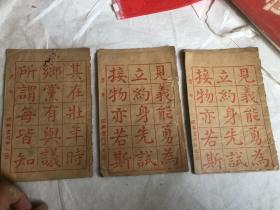 其在壯年時
鄉黨有與議
所謂毋皆知
見義能勇為
立約身先試
接物亦若斯
見義能勇為
立約身先試
接物亦若斯